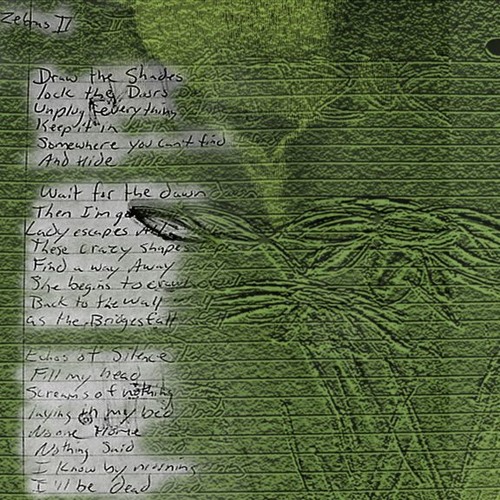 Zebras II
Draw the Shades
lock the Doors
Unplug everything
Keep it in
Somewhere you can't find
And Hide
Wait for the dawn
Then I'm
Lady escapes
These crazy shapes
Find a way Away
She begins to crawl
Back to the wall
as the Bridges fall
Echos of Silence
Fill my head
Screams of nothing
laying in my bed
No one Home
Nothing Said
I know by morning
I'll be dead